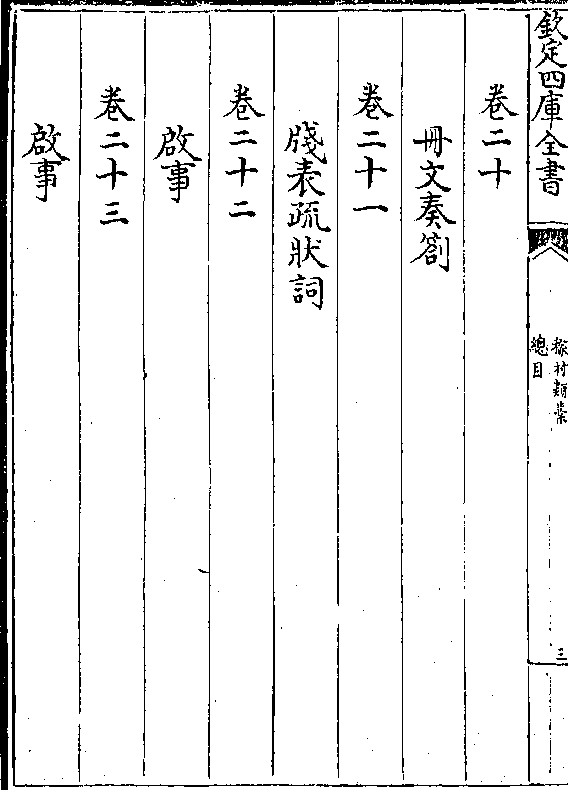 欽定四庫全書
稼村類藁
總目
三
卷二十
冊文奏劄
卷二十一
牋表疏狀詞
卷二十二
啟事
卷二十三
啟事